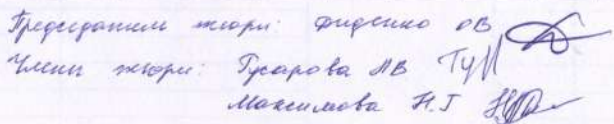 Председатель жюри: Фиденко ОВ
Члены жюри: Гусарова НВ
Максимова Н.Г